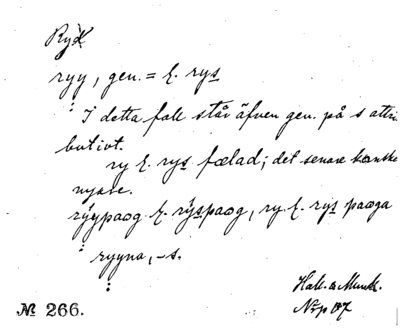 Ryd
ryy, gen. = l. rys
I detta fall står äfven gen. på s attri
butivt.
ry l. rys fælad; det senare kanske
nyare.
rýypaog l. rýspaog, ry l. rys paoga
ryyna, -s.
Hall. o. Munk.
№ 266.